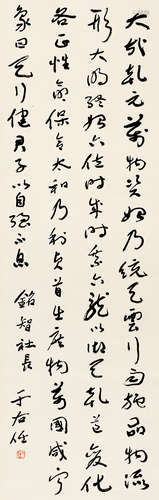 大哉乾元萬物資始乃統天雲行雨施品物流
形大明終始六位時成時乘六龍以御天乾道變化
各正性命保合太和乃利貞首出庶物萬國咸寧
象曰天行健君子以自強不息 銘智社長 于右任